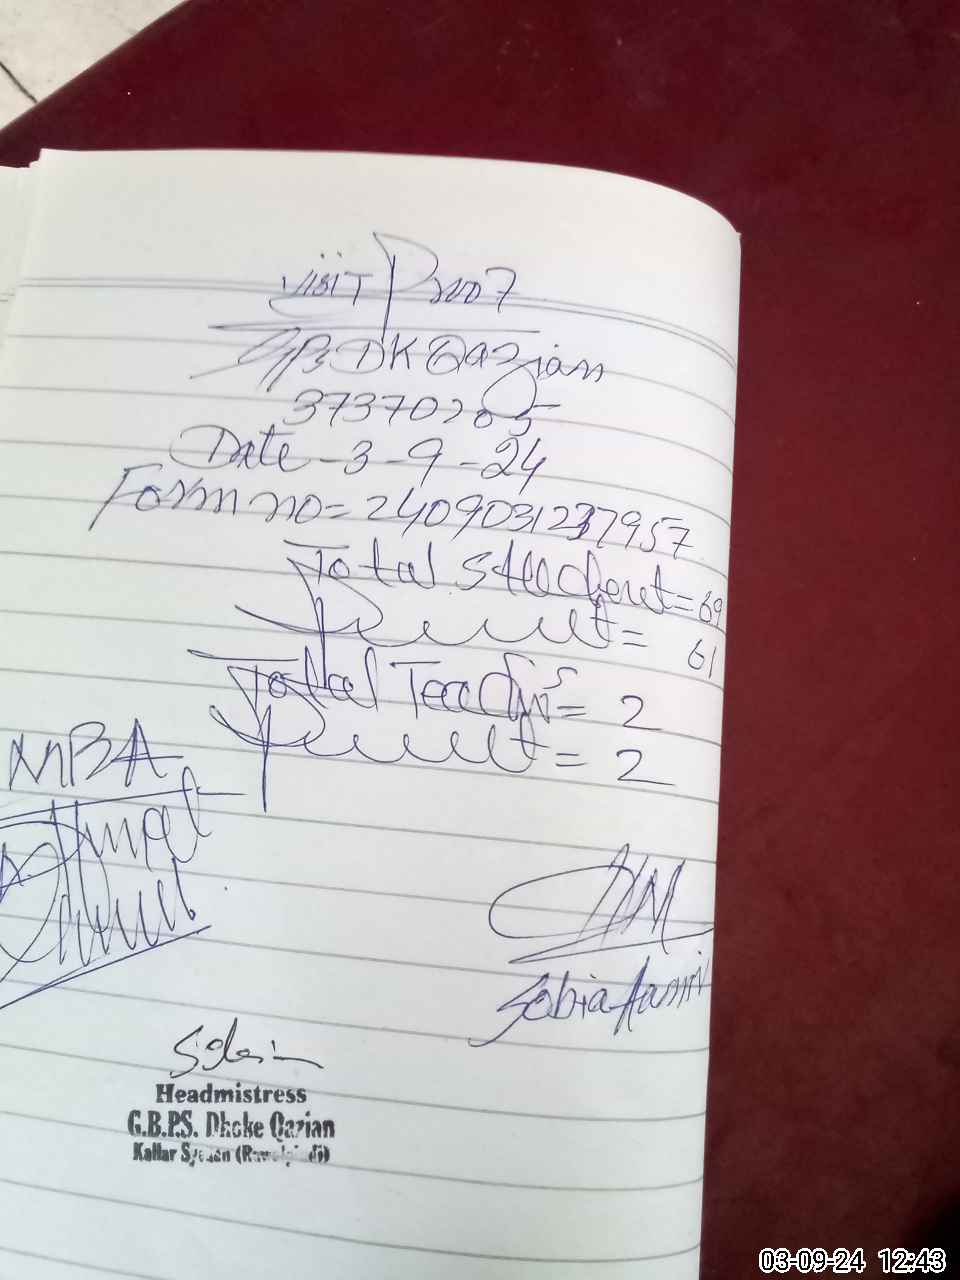 Visit Proof
GPS DK Qazian
37370205
Date - 3 - 9 - 24
Form no = 2409031237957
Total Student = 69
Present = 61
Total Teachers = 2
Present = 2
MBA
HM
Sobia Aamir
Headmistress
G.B.P.S. Dhoke Qazian
Kallar Syedan (Rawalpindi)
03-09-24 12:43